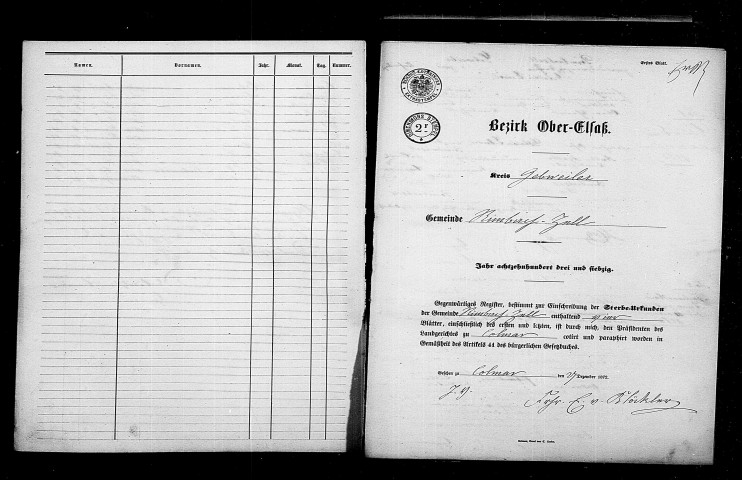 Namen. Vornamen. Jahr. Monat. Tag. Nummer.
Erstes Blatt.
Bezirk Ober-Elsaß.
Kreis Gebweiler
Gemeinde Rimbach-Zell
Jahr achtzehnhundert drei und siebzig.
Gegenwärtiges Register, bestimmt zur Einschreibung der Sterbe-Urkunden
der Gemeinde Rimbach Zell enthaltend vier
Blätter, einschließlich des ersten und letzten, ist durch mich, den Präsidenten des
Landgerichtes zu Colmar cotirt und paraphirt worden in
Gemäßheit des Artikels 41 des bürgerlichen Gesetzbuches.
Gesehen zu Colmar den 27 Dezember 1872.